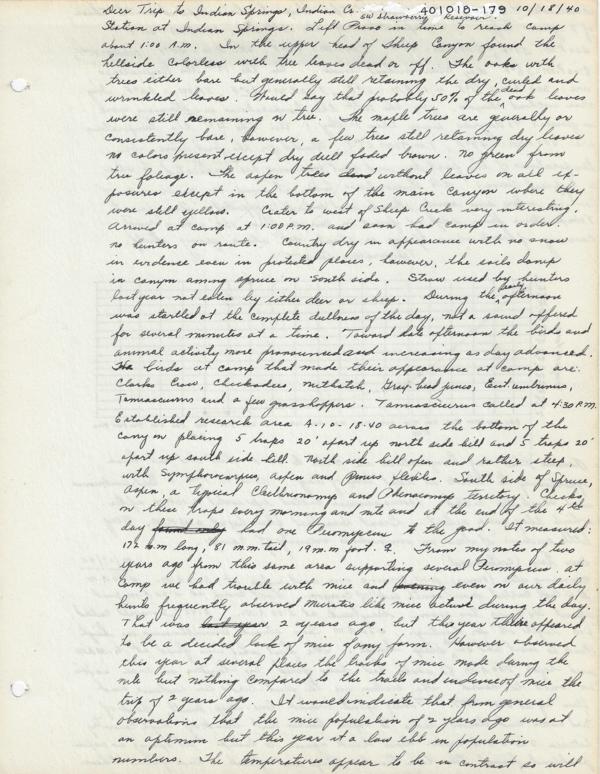 Deer Trip to Indian Springs, Indian Co. SW Strawberry Reservoir. 401018-179 10/18/40
Station at Indian Springs. Left Provo in time to reach camp
about 1:00 A.M. In the upper head of Sheep Canyon found the
hillside colorless with tree leaves dead or off. The oaks with
trees either bare but generally still retaining the dry, curled and
wrinkled leaves. Would say that probably 50% of the dead oak leaves
were still remaining on tree. The maple trees are generally or
consistently bare, however, a few trees still retaining dry leaves
no colors present except dry dull faded brown. No green from
tree foliage. The aspen trees without leaves on all ex-
posures except in the bottom of the main canyon where they
were still yellow. Crater to west of Sheep Creek very interesting.
Arrived at camp at 1:00 P.M. and soon had camp in order.
no hunters on route. Country dry in appearance with no snow
in evidence even in protected places, however, the soils damp
in canyon among spruce on south side. Straw used by hunters
last year not eaten by either deer or sheep. During the early afternoon
was startled at the complete dullness of the day, not a sound offered
for several minutes at a time. Toward late afternoon the birds and
animal activity more pronounced and increasing as day advanced.
birds at camp that made their appearance at camp are:
Clarks Crow, Chickadees, Nuthatch, Gray-head junco,
Tamiasciurus and a few grasshoppers. Tamiasciurus called at 4:30 P.M.
Established research area A-10-18-40 across the bottom of the
canyon placing 5 traps 20' apart up north side hill and 5 traps 20'
apart up south side hill. North side hill open and rather steep,
with Symphoricarpus, aspen and Pinus flexiles. South side of Spruce,
Aspen, a typical Clethrionomys and Phenacomys territory. Checks
on these traps every morning and nite and at the end of the 4th
day found only had one Peromyscus to the good. It measured:
172 m.m long, 81 m.m. tail, 19 m.m foot. ♀. From my notes of two
years ago from this same area supporting several Peromyscus. at
Camp we had trouble with mice and evening even on our daily
hunts frequently observed Microtis like mice active during the day.
That was last year 2 years ago, but this year there appeared
to be a decided lack of mice of any form. However observed
this year at several places the tracks of mice made during the
nite but nothing compared to the trails and evidence of mice the
trip of 2 years ago. It would indicate that from general
observations that the mice population of 2 years ago was at
an optimum but this year at a low ebb in population
numbers. The temperatures appear to be in contrast so will